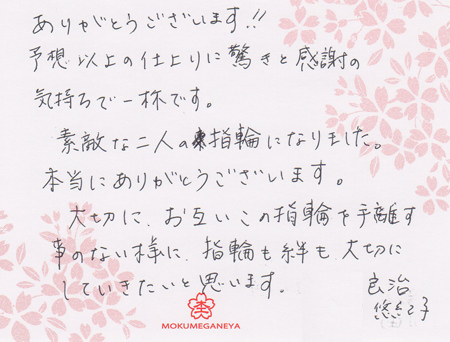 ありがとうございます!!
予想以上の仕上りに驚きと感謝の
気持ちで一杯です。
素敵な二人の指輪になりました。
本当にありがとうございます。
大切に、お互いこの指輪を手離す
事のない様に、指輪も絆も大切に
していきたいと思います。
良治
悠紀子
MOKUMEGANEYA